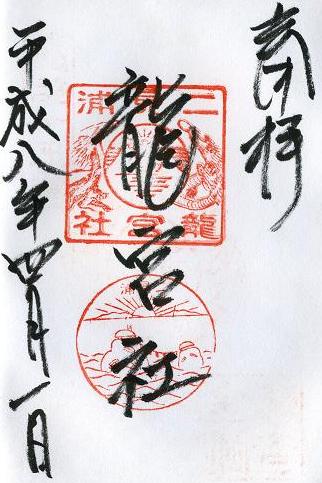 奉拝
龍宮社
二見浦
龍宮社
平成八年四月一日